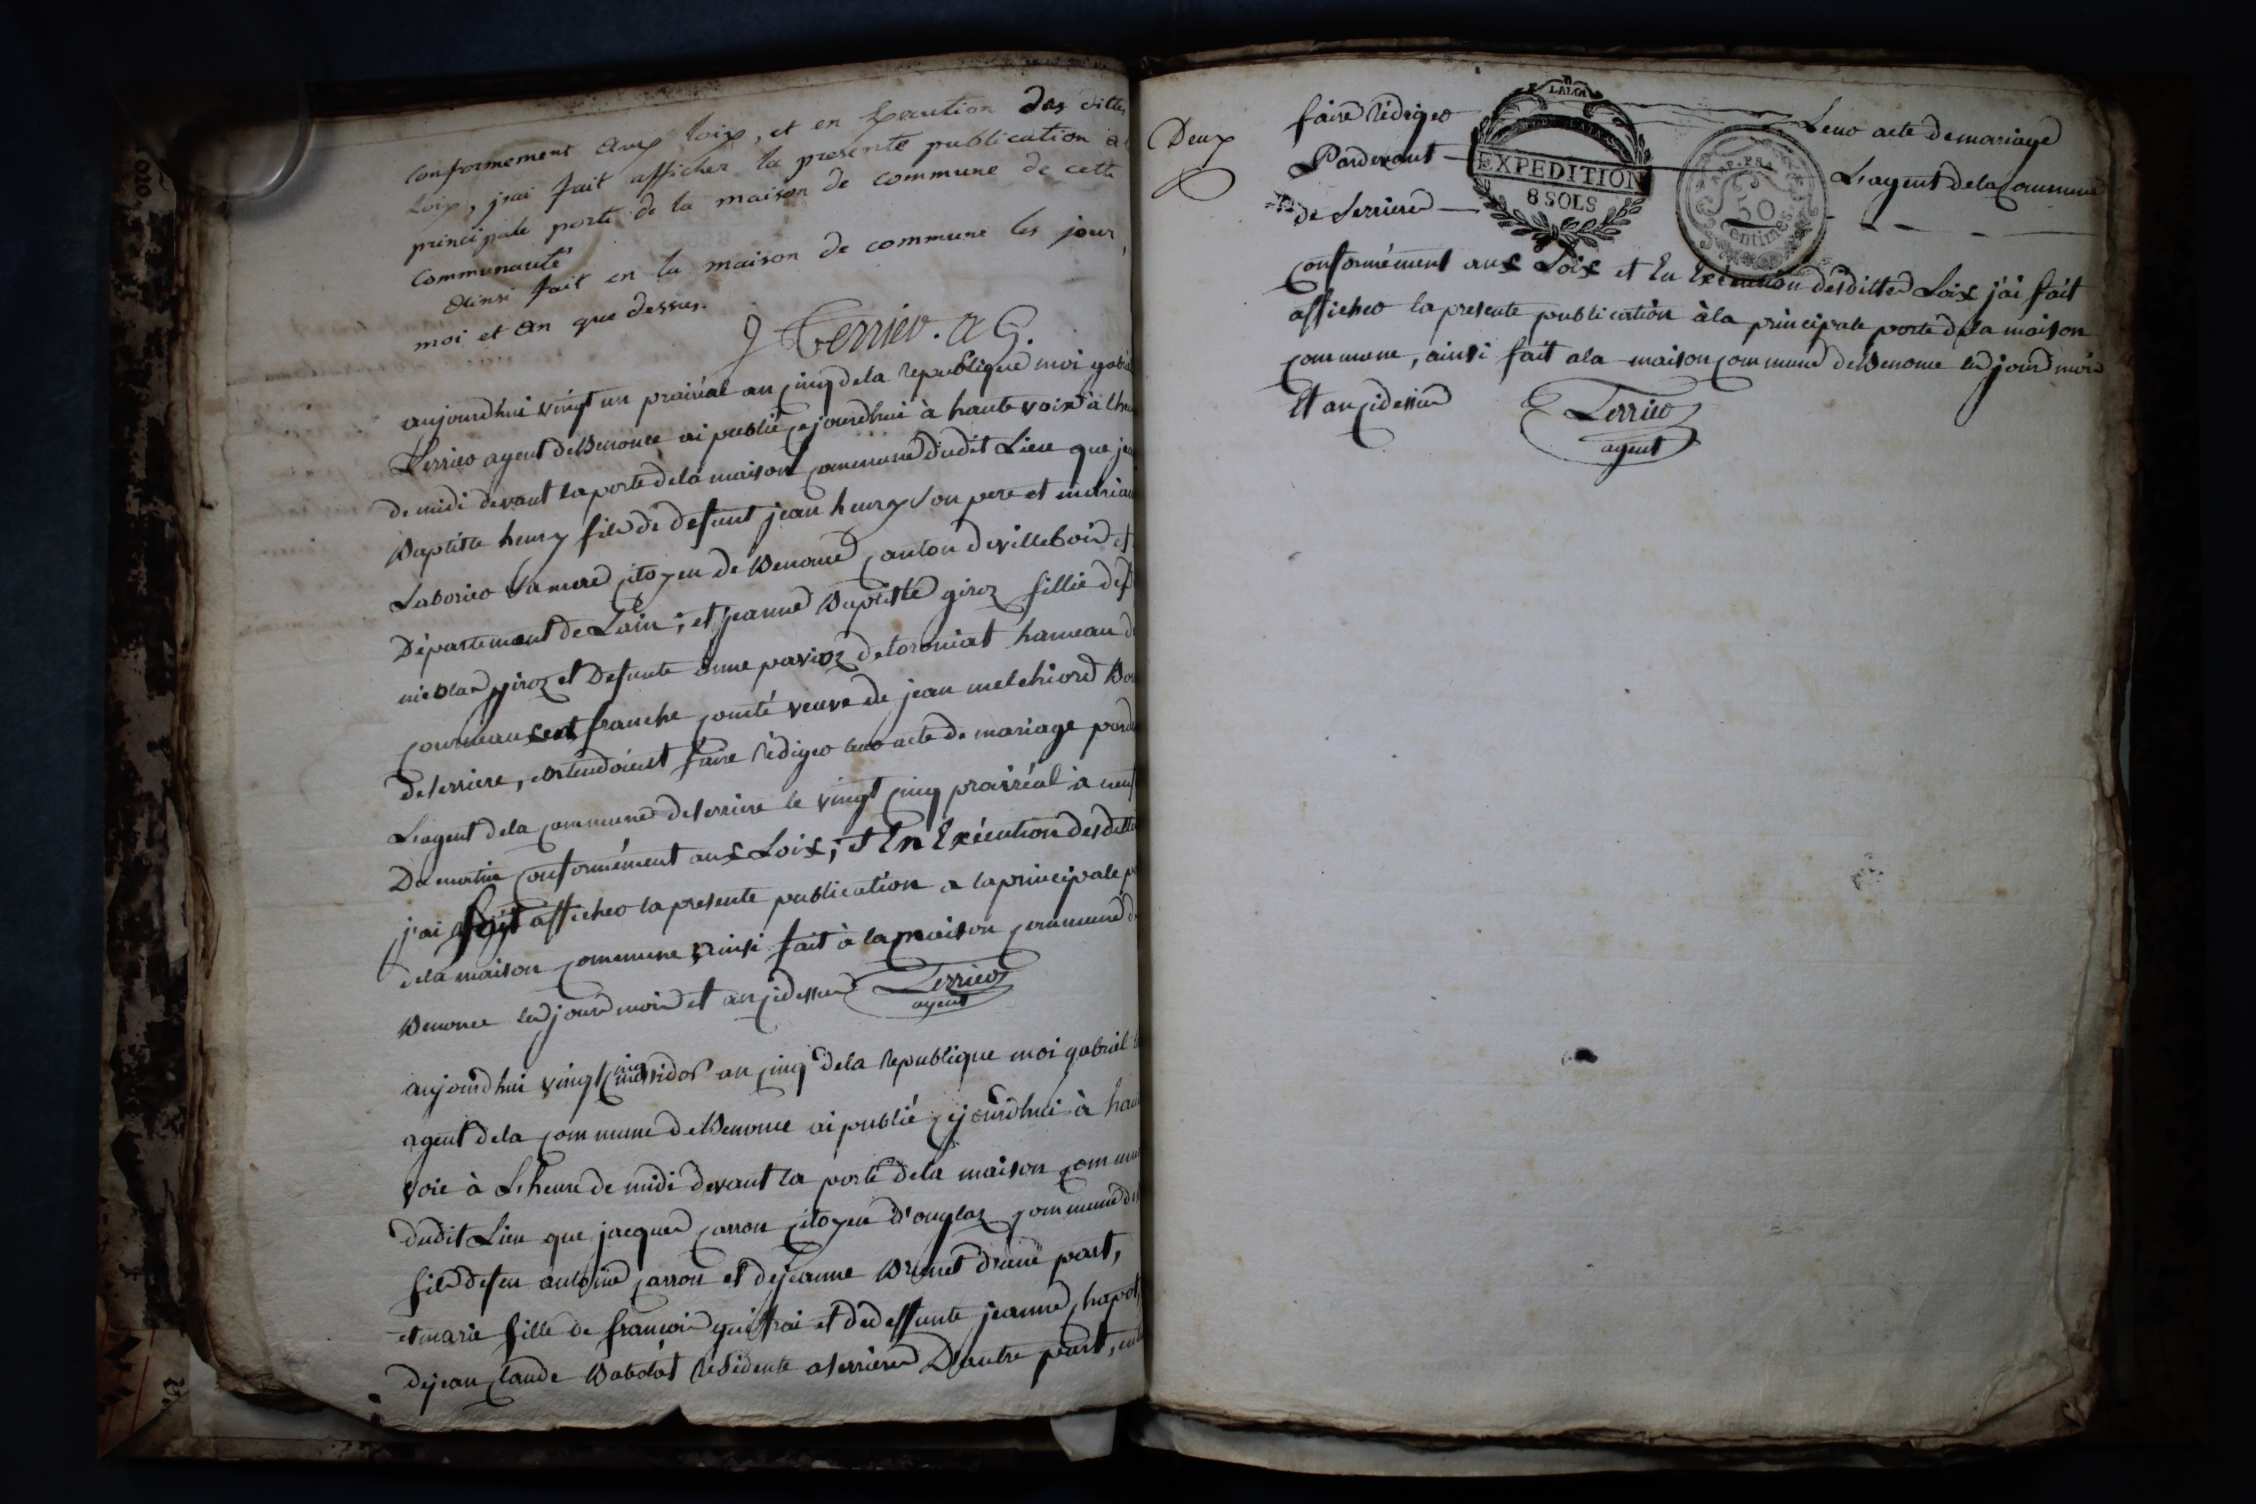 conformement aux loix, et en execution des dittes
loix, j'ai fait afficher la presente publication a
principale porte de la maison de commune de cette
communauté
ainsi fait en la maison de commune les jour,
moi et an que dessus.
Terrier. a G.
aujourdhui vingt un prairéal an cinq dela republique moi gabriel
Terrier agent de Benonce ai publié cejourdhui à haute voix à lheure
de midi devant la porte dela maison commune dudit Lieu que jean
Baptiste henry fils de defunt jean henry son pere et mariane
Laborier sa mere citoyen de Benonce canton de villebois et
Département de Lain; et jeanne Baptiste giroz fillie def
nicolas giroz et defunte anne pavioz de toroniat hameau de
franche comté veuve de jean melchiord
de serriere, entendoient faire rédiger leur acte de mariage pard
L'agent dela commune de serriere le vingt cinq prairéal à neuf
Du matin conformément aux Loix; et En Exécution desdittes
j'ai fait afficher la presente publication a la principale p
dela maison commune ainsi fait à la maison commune de
Benonce les jours mois et an cidessus Terrier
agent
aujourdhui vingt cinq messidor an cinq dela republique moi gabriel
agent dela commune de Benonce ai publié cejourdhui à haute
voie à L'heure de midi devant la porte dela maison commune
dudit Lieu que jacques carron citoyen d'ouglas commune de
fils defeu antoine carron et dejeanne Brunet d'une part,
et marie fille de francois guiffrai et de deffunte jeanne chapot
dejean claude Babolat résidente a serriere D'autre part, ent
Deux
faire rédiger Leur acte de mariage
Pardevant L'agent dela Commune
de Serriere
LAIN
EXPEDITION
8 SOLS
REP. FRA
50
Centimes.
conformément aux Loix et En Exécution desdittes Loix j'ai fait
afficher la presente publication à la principale porte dela maison
commune, ainsi fait a la maison commune de Benonce les jours mois
Et an cidessus Terrier
agent